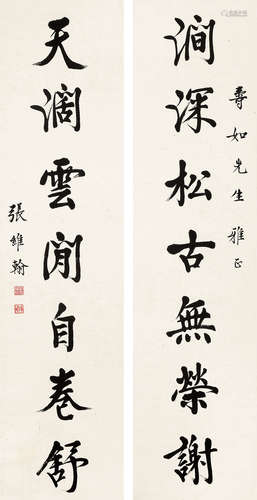 壽如先生雅正
澗深松古無榮謝
天濶雲閒自卷舒
張維翰